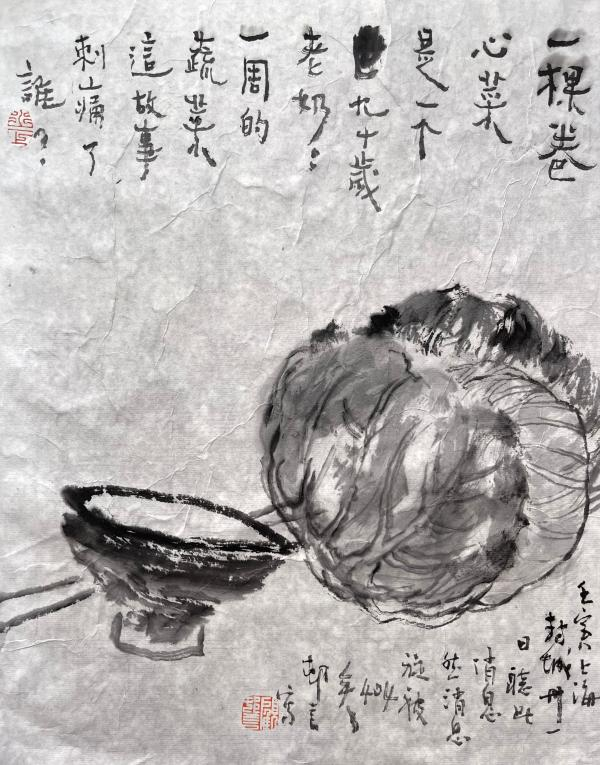 一棵卷
心菜
是一个
九十歲
老奶〻
一周的
蔬菜
這故事
刺痛了
誰？
壬寅上海
封城卅一
日聽此
消息
然消息
旋被
404
寫